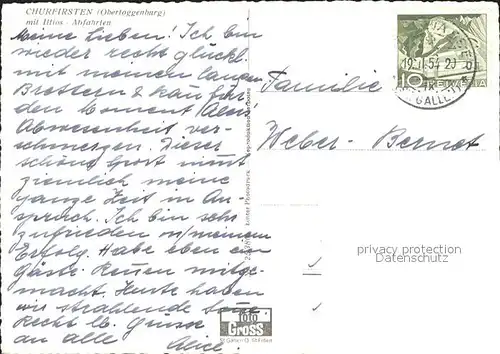 CHURFIRSTEN (Obertoggenburg)
mit Iltios - Abfahrten
Meine Lieben! Ich bin
wieder recht glückl.
mit meinen langen
Brettern & kann für
den Moment
Abwesenheit ver-
schmerzen. Dieser
schöne Sport nimmt
ziemlich meine
ganze Zeit in An-
spruch. Ich bin sehr
zufrieden m/meinem
Erfolg. Habe eben ein
Gäste Rennen mitge-
macht. Heute haben
wir strahlende Sonne
Recht lb. Grüsse
an alle Alice.
foto
Gross
St. Gallen
Familie
Weber - Bernet
19.II.54
10 HELVETIA
privacy protection
Datenschutz